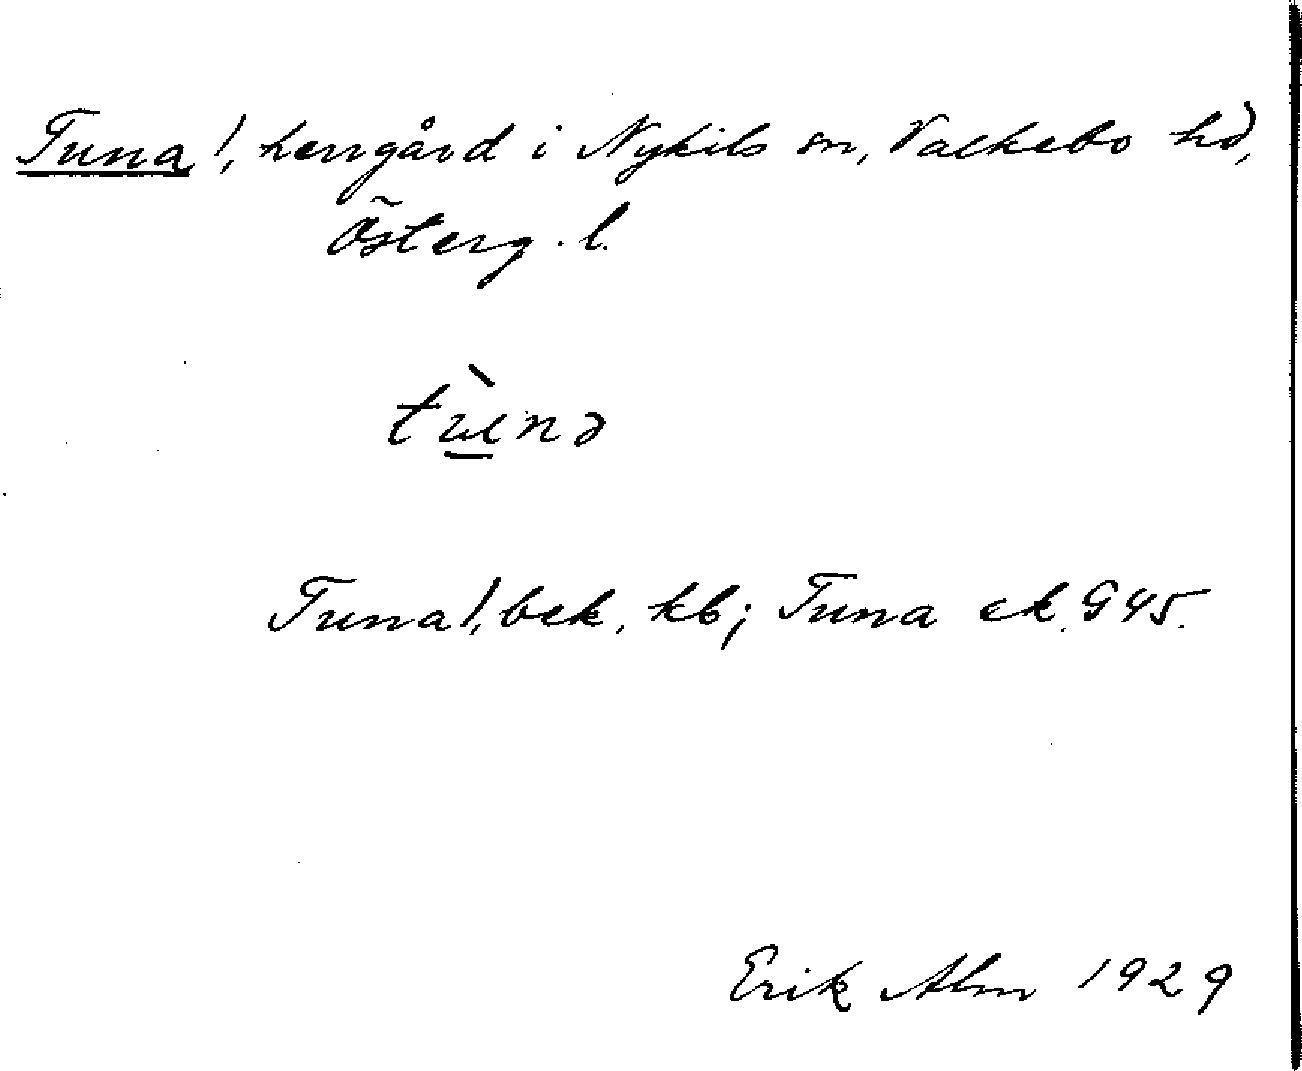 Tuna!, herrgård i Nykils sn, Valkebo hd,
Österg. l.
tùnə
Tuna!, bek, kb; Tuna ek. G45.
Erik Alm 1929